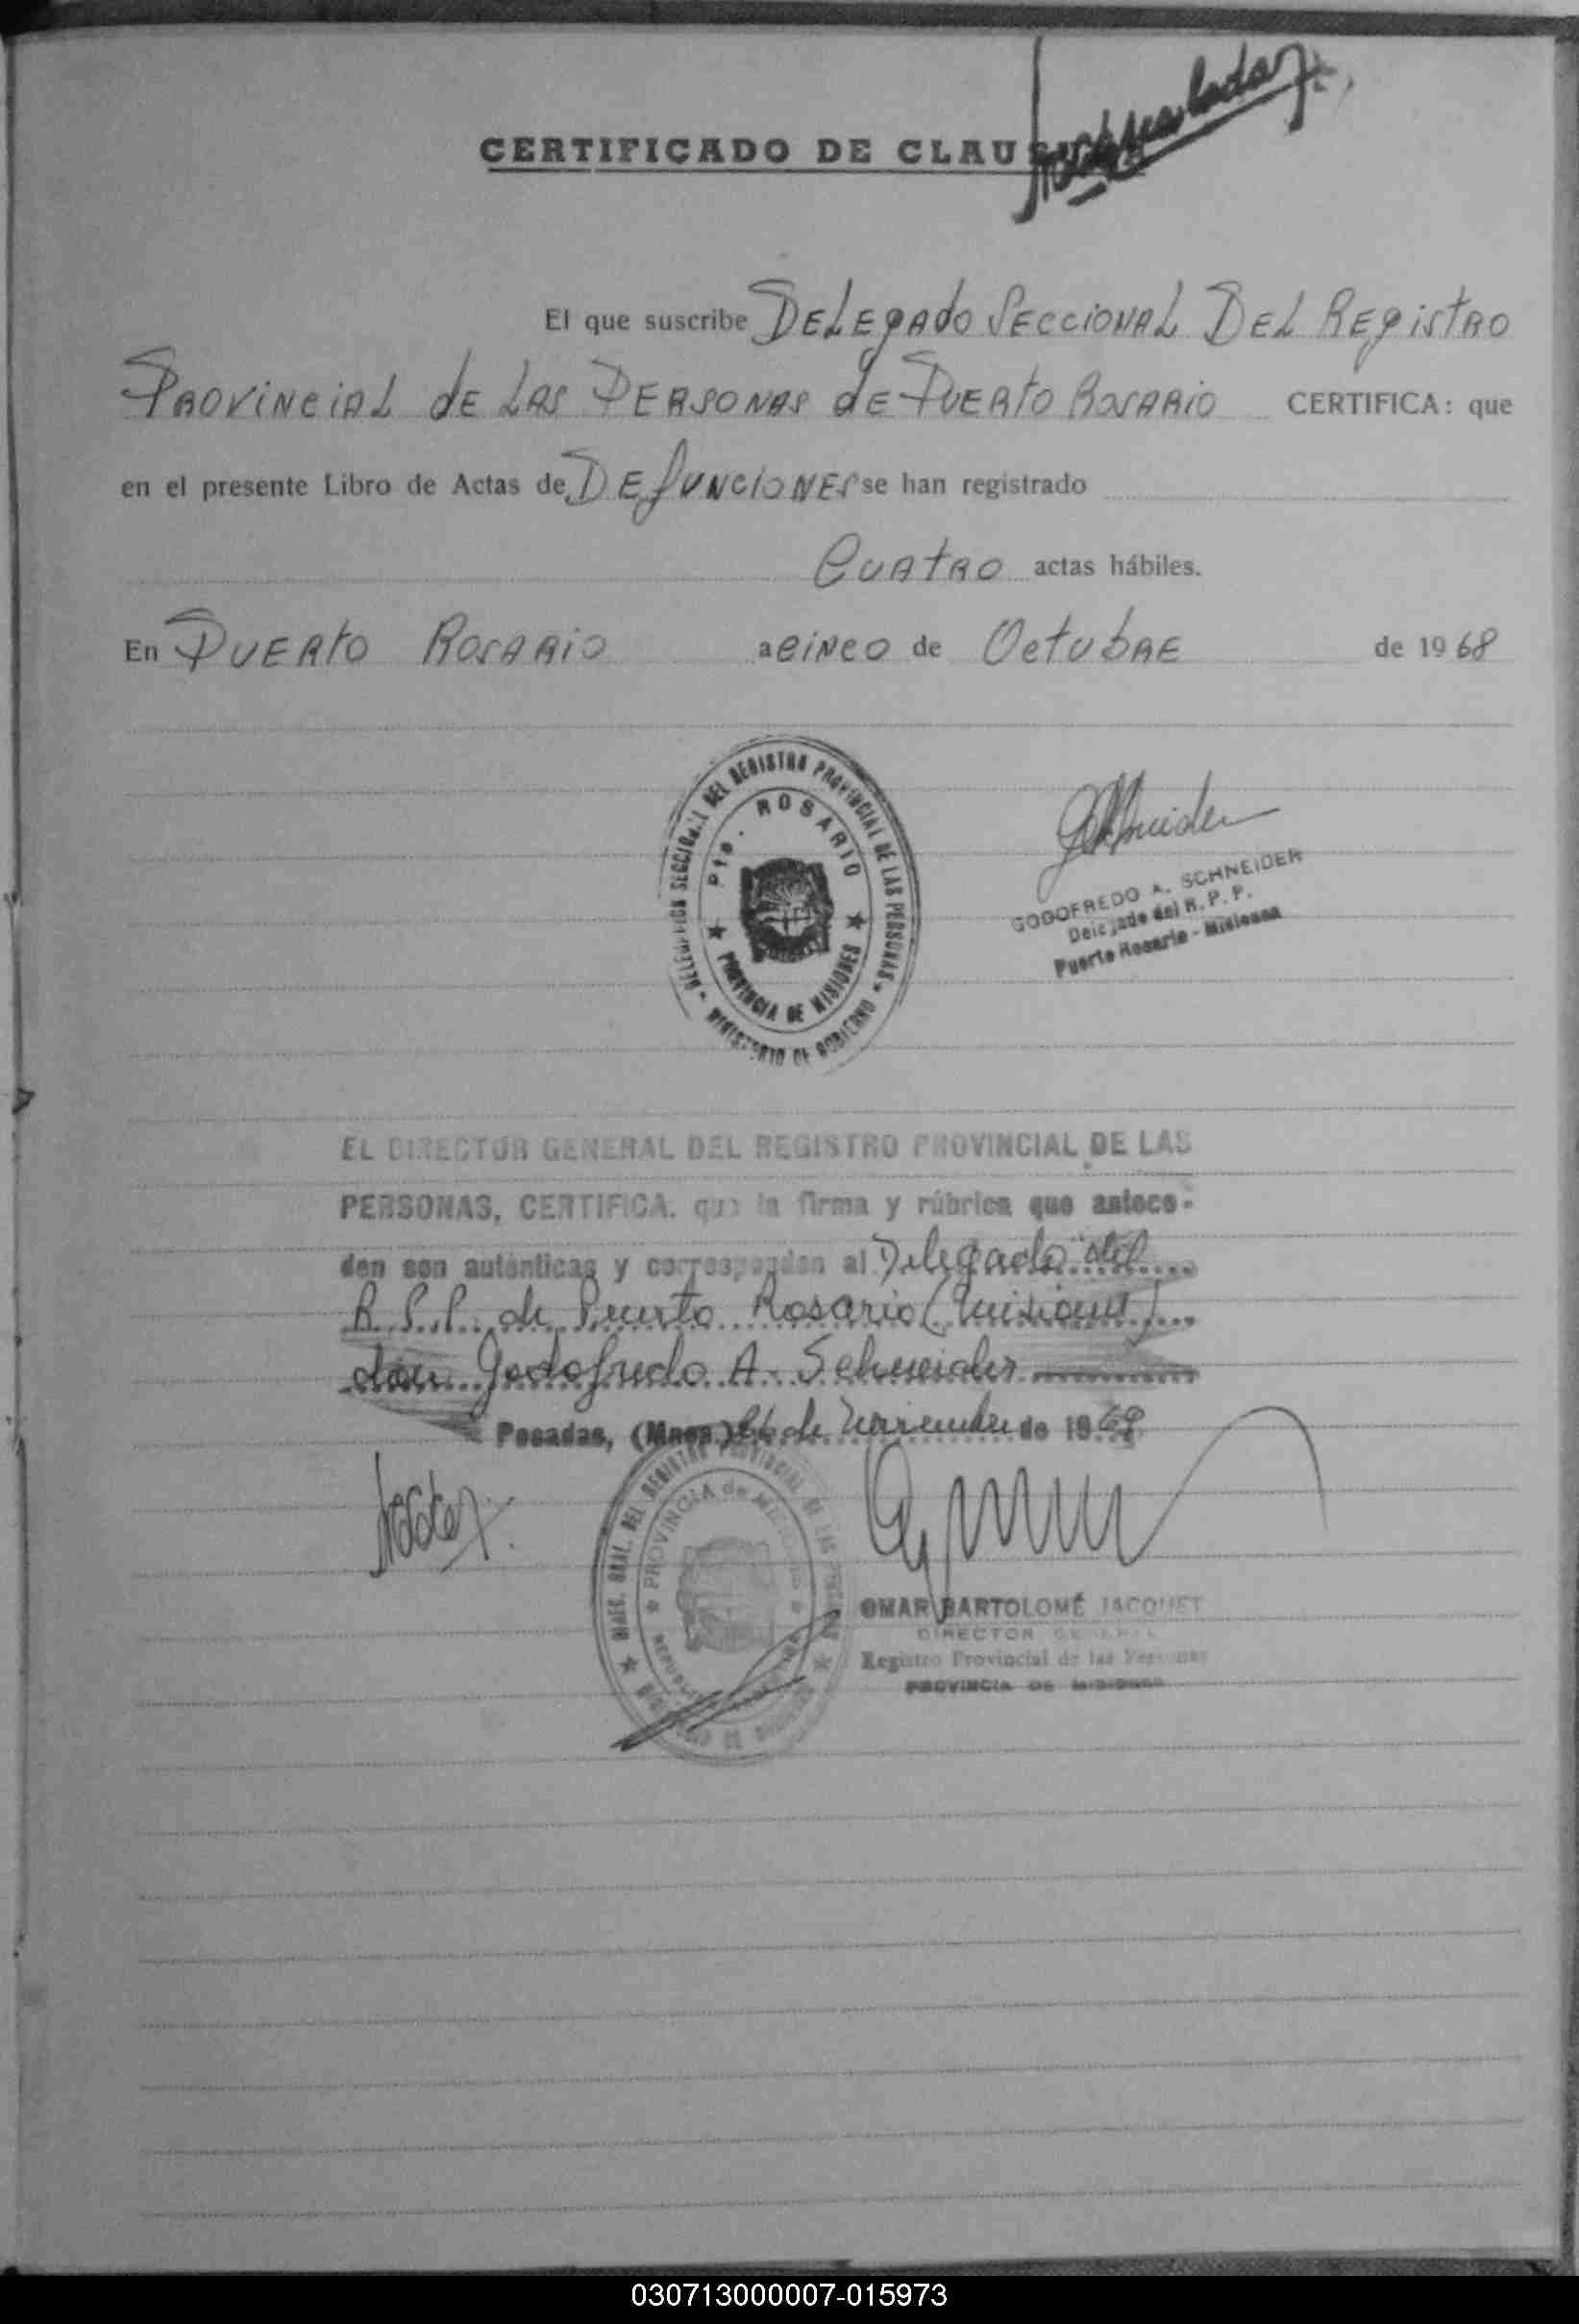 CERTIFICADO DE CLAU
El que suscribe DELEGADO SECCIONAL DEL REGISTRO
PROVINCIAL DE LAS PERSONAS DE PUERTO ROSARIO CERTIFICA: que
en el presente Libro de Actas de DEFUNCIONES se han registrado
CUATRO actas hábiles.
En PUERTO ROSARIO a CINCO de OCTUBRE de 1968
DELEGACION SECCIONAL DEL REGISTRO PROVINCIAL DE LAS PERSONAS
MINISTERIO DE GOBIERNO
Pto. ROSARIO
PROVINCIA DE MISIONES
GODOFREDO A. SCHNEIDER
Delegado del R. P. P.
Puerto Rosario - Misiones
EL DIRECTOR GENERAL DEL REGISTRO PROVINCIAL DE LAS
PERSONAS, CERTIFICA. que la firma y rúbrica que antece-
den son auténticas y corresponden al Delegado del
R.P.P. de Puerto Rosario (Misiones)
don Godofredo A. Schneider
Posadas, (Mnes.) de Noviembre de 19
DIREC. GRAL. DEL REGISTRO PROVINCIAL DE LAS
PROVINCIA de
OMAR BARTOLOMÉ JACQUET
DIRECTOR GENERAL
Registro Provincial de las Personas
PROVINCIA DE MISIONES
030713000007-015973